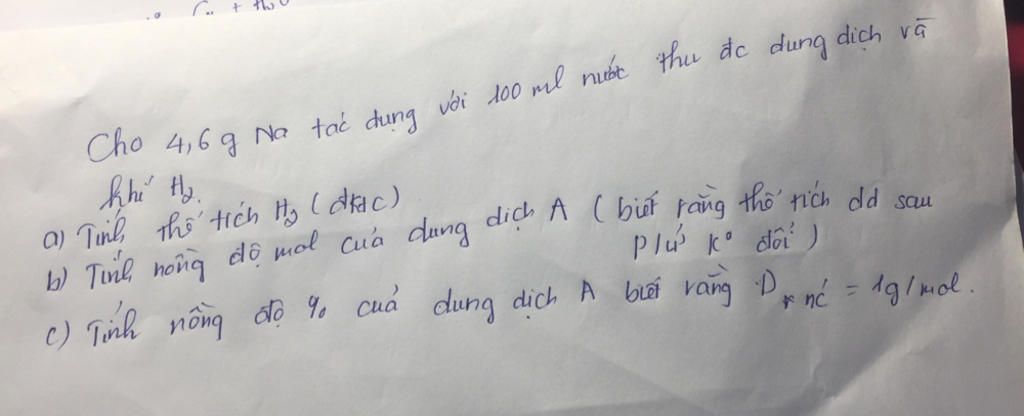 Cu + H₂O
Cho 4,6 g Na tác dụng với 100 ml nước thu đc dung dịch và
khí H₂.
a) Tính thể tích H₂ (đktc)
b) Tính nồng độ mol của dung dịch A (biết rằng thể tích dd sau
p/ứ k° đổi)
c) Tính nồng độ % của dung dịch A biết rằng D nc = 1g/mol.